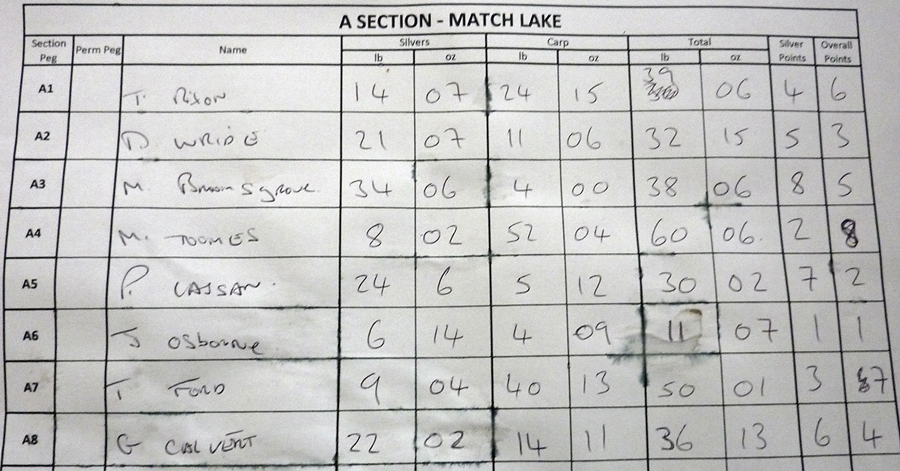 A SECTION - MATCH LAKE
Section Peg Perm Peg Name Silvers Carp Total Silver Points Overall Points
lb oz lb oz lb oz
A1 T. Rixon 14 07 24 15 39 06 4 6
A2 D WRIDE 21 07 11 06 32 15 5 3
A3 M. Bromsgrove. 34 06 4 00 38 06 8 5
A4 M. TOOMES 8 02 52 04 60 06. 2 8
A5 P. CASSAN. 24 6 5 12 30 02 7 2
A6 J OSborne 6 14 4 09 11 07 1 1
A7 T FORD 9 04 40 13 50 01 3 7
A8 G CALVERT 22 02 14 11 36 13 6 4